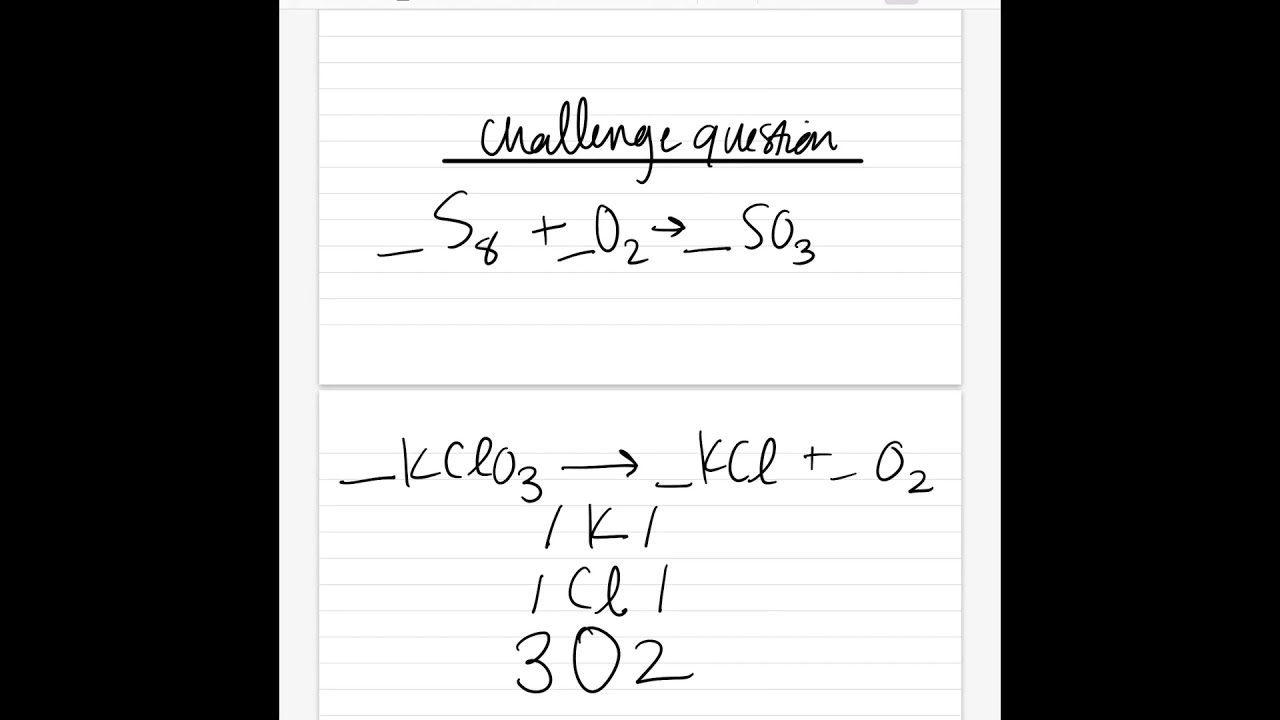 Challenge question
_ S₈ + _ O₂ → _ SO₃
_ KClO₃ → _ KCl + _ O₂
1 K 1
1 Cl 1
3 O 2